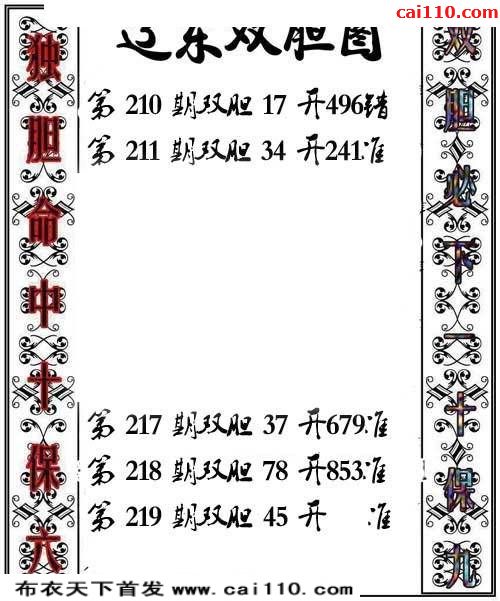 cai110.com
辽东双胆图
独胆命中十保六
第 210 期双胆 17 开496错
第 211 期双胆 34 开241准
第 217 期双胆 37 开679准
第 218 期双胆 78 开853准
第 219 期双胆 45 开 准
双胆必下一十保九
布衣天下首发 www.cai110.com